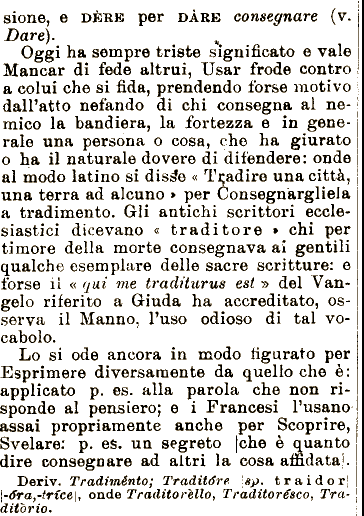 sione, e DÈRE per DÀRE consegnare (v.
Dare).
Oggi ha sempre triste significato e vale
Mancar di fede altrui, Usar frode contro
a colui che si fida, prendendo forse motivo
dall'atto nefando di chi consegna al ne-
mico la bandiera, la fortezza e in gene-
rale una persona o cosa, che ha giurato
o ha il naturale dovere di difendere: onde
al modo latino si disse « Tradire una città,
una terra ad alcuno » per Consegnargliela
a tradimento. Gli antichi scrittori eccle-
siastici dicevano « traditore » chi per
timore della morte consegnava ai gentili
qualche esemplare delle sacre scritture: e
forse il « qui me traditurus est » del Van-
gelo riferito a Giuda ha accreditato, os-
serva il Manno, l'uso odioso di tal vo-
cabolo.
Lo si ode ancora in modo figurato per
Esprimere diversamente da quello che è:
applicato p. es. alla parola che non ri-
sponde al pensiero; e i Francesi l'usano
assai propriamente anche per Scoprire,
Svelare: p. es. un segreto [che è quanto
dire consegnare ad altri la cosa affidata].
Deriv. Tradiménto; Traditóre [sp. traidor]
[-óra,-tríce], onde Traditorèllo, Traditorésco, Tra-
ditòrio.